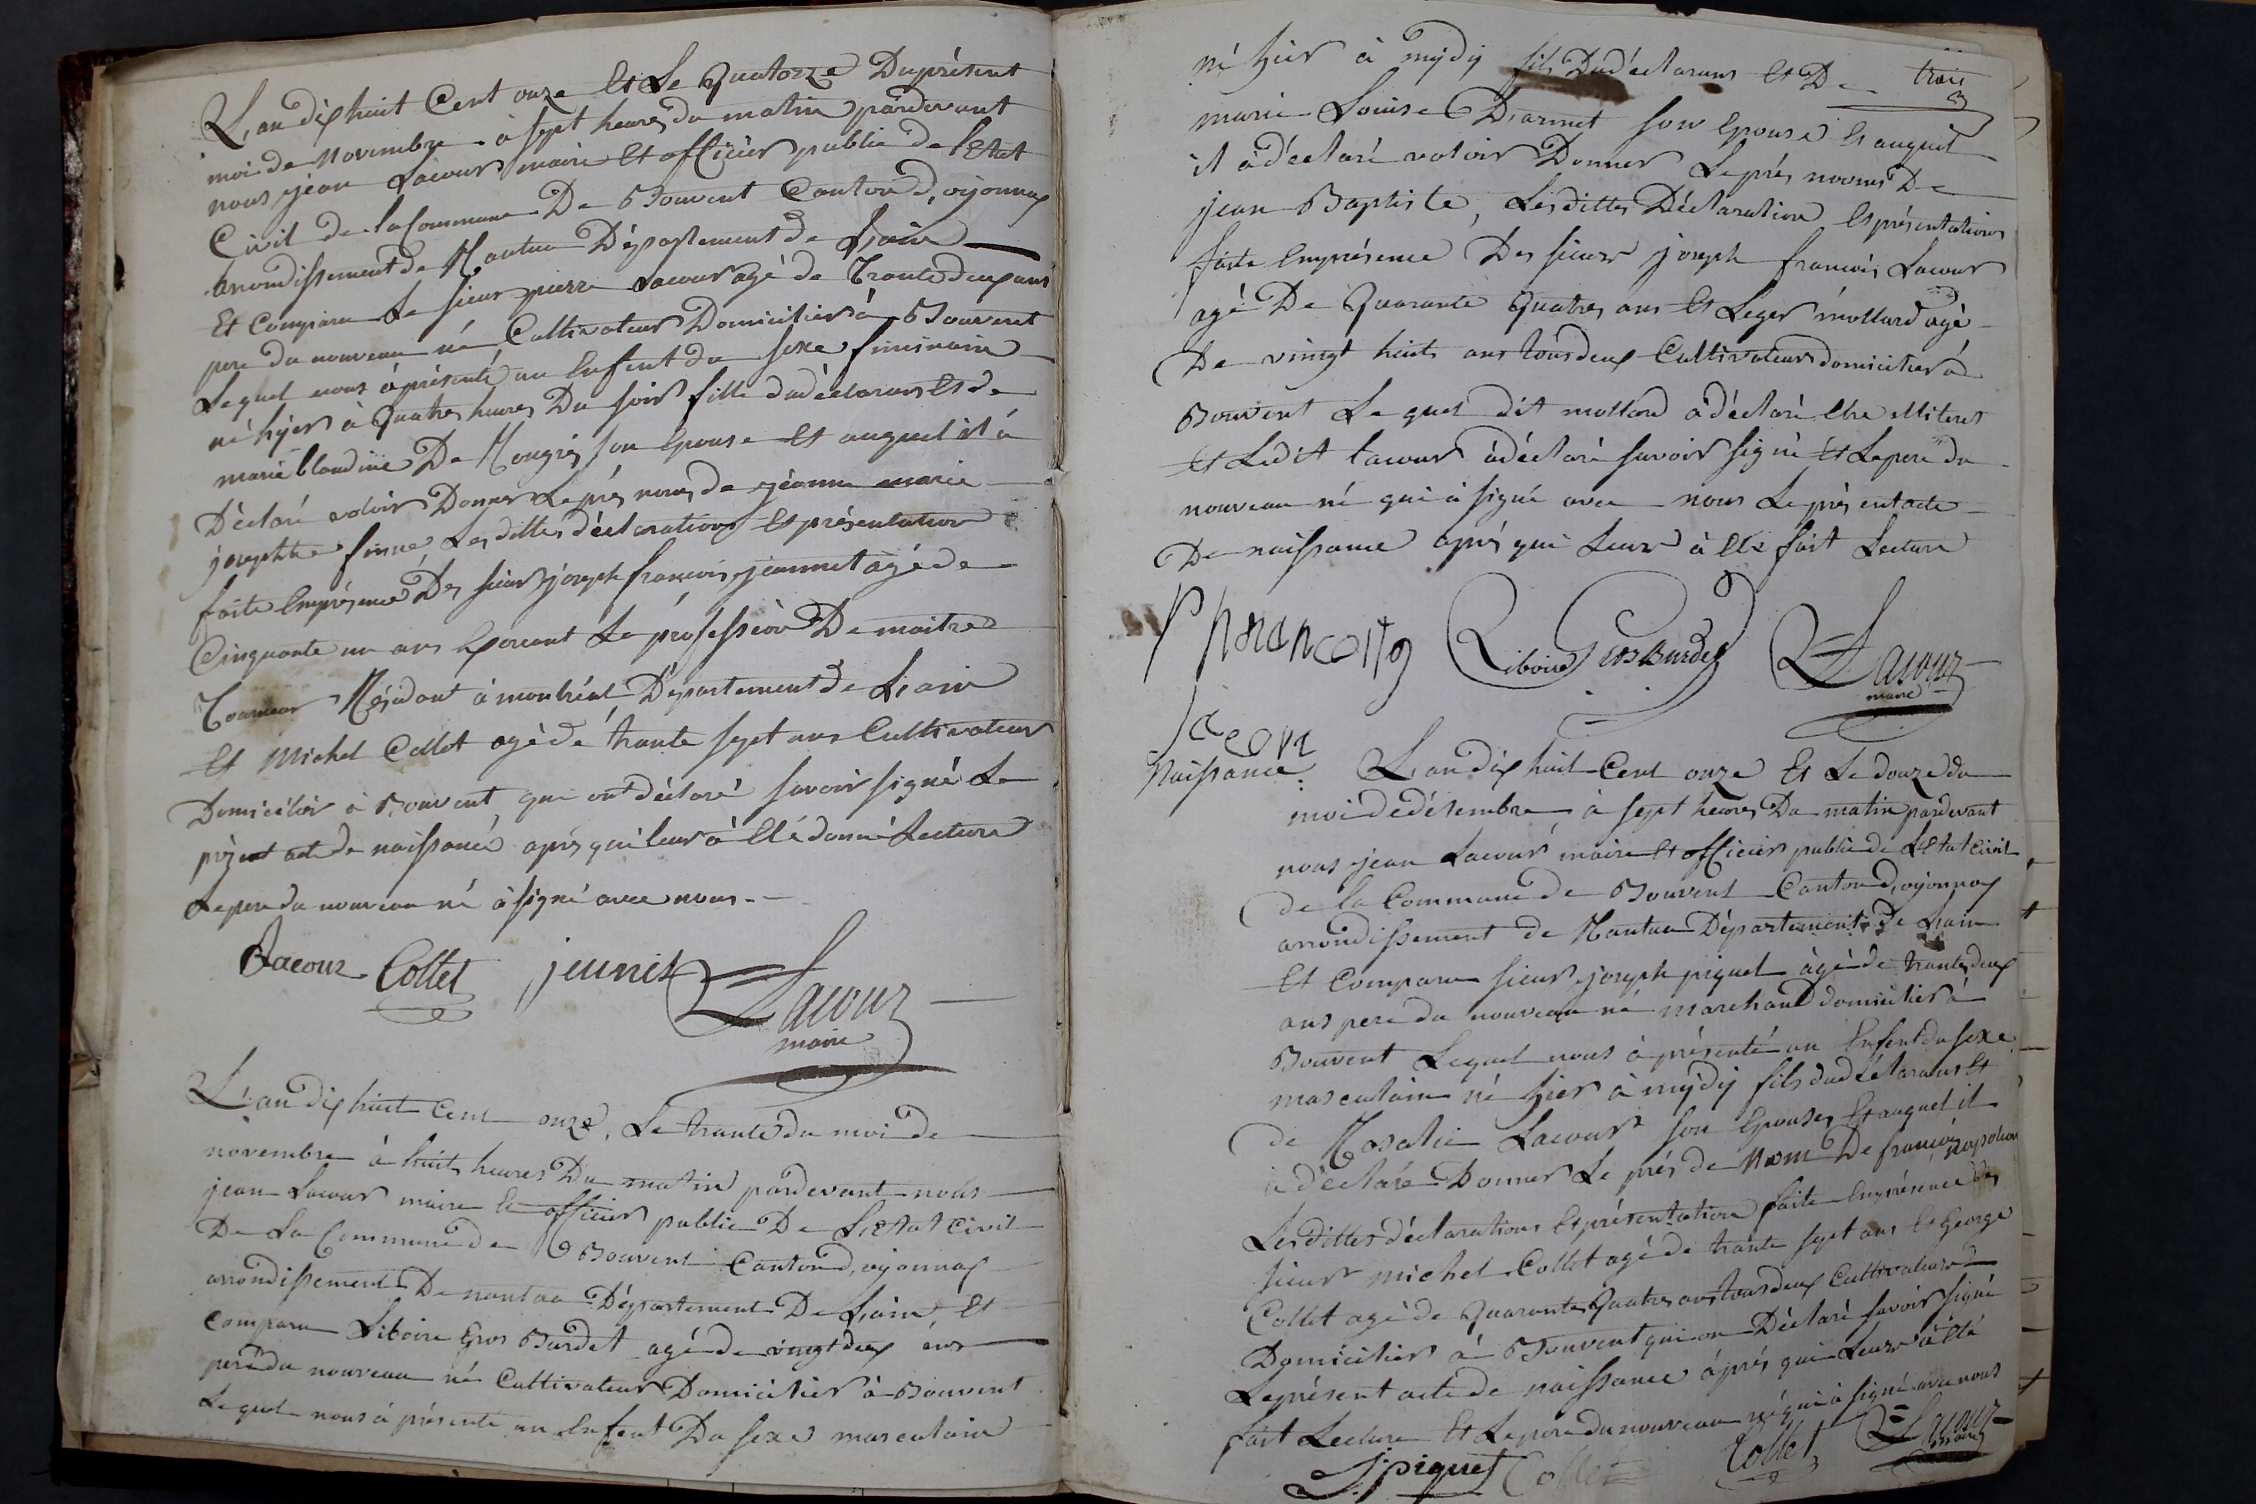 L,an dix huit Cent onze Et Le Quatorze Duprésent
moi de Novembre à sept heures du matin pardevant
nous jean Lacour maire Et officier public de l'Etat
Civil de la Commune De Bouvent Canton d,oijonnax
arrondissement de Nantua Département de L,ain
Et Comparu Le sieur pierre Lacour agé de Trante deux ans
pere du nouveau né Cultivateur Domicilier à Bouvent
Lequel nous à présenté un Enfent du sexe feminain
né hyer à Quatre heures Du soir fille dudéclarans Et de
marie blandine De Mougis son Epouse Et auquel il à
Déclaré voloir Donner Le prés noms de jeanne marie
josephte finne, Les dittes déclarations Et présentation
faite En présence Des sieur joseph francois jeannet agé de
Cinquante un ans Exercant La profession De maitre
Tourneur Résidant à montréal Département de L,ain
Et Michel Collet agé de trante sept ans Cultivateur
Domicilier à Bouvent, qui on déclaré savoir signé Le
prézent acte de naissance, aprés qui leur à Eté donné Lecture
Le pere du nouveau né à signé avec nous.-
Lacour Collet jeunet Lacour
maire
L'an dix huit Cent onze, Le trante du moi de
novembre à huit heures Du matin pardevant nous
jean Lacour maire Et officier public De L,Etat Civil
De La Commune de Bouvent Canton d,oijonnax
arrondissement De nantua Département De L,ain Et
Comparu Liboire Gros Burdet agé de vingt deux ans
pere du nouveau né Cultivateur Domicilier à Bouvent
Lequel nous à présenté un Enfent Du sexe masculain
trois
né hier à mydy fils Dudéclarans Et De
marie Louise D,armet son Epouse Et auquel
il à déclaré voloir Donner Le prés nooms De
jean Baptiste, Les dittes Déclaration Et présentations
faite En présence Des sieur joseph francois Lacour
agé De Quarante Quatres ans Et Leger mollard agé
De vingt huit ans tous deux Cultivateurs domicilier à
Bouvent Le quel dit mollard à déclaré Etre illiteret
Et Ledit Lacour à déclaré savoir signé Et Le pere du
nouveau né qui à signé avec nous Le prés entacte
De naissance aprés qui Leur à Eté fait Lecture
francois Liboire Gros Burdet Lacour
maire
lacour
Naissance L,an dix huit Cent onze Et Le douze du
moi de désembre à sept heures Du matin pardevant
nous jean Lacour maire Et officier public de L'Etat Civil
de la Commune de Bouvent Canton d,oijonnax
arrondissement de Nantua Département De L'ain
Et Comparu sieur joseph piquet agé de trante deux
ans pere du nouveau né marchand domicilier à
Bouvent Lequel nous à présenté un Enfent du sexe
masculain né hier à mydy fils dudéclarans Et
de Rosalie Lacour son Epouse, Et auquel il
à déclaré Donner Le prés de Nom De francois napoleon
Les dittes déclarations Et présentation faite En présence Des
sieur michel Collet agé de trante sept ans Et George
Collet agé de Quarante Quatres ans tous deux Cultivateur
Domicilier à Bouvent qui on Déclaré savoir signé
Le présent acte de naissance aprés qui Leur à Eté
fait Lecture Et Le pere du nouveau né qui à signé avec nous
J piquet Collet Collet Lacour
maire